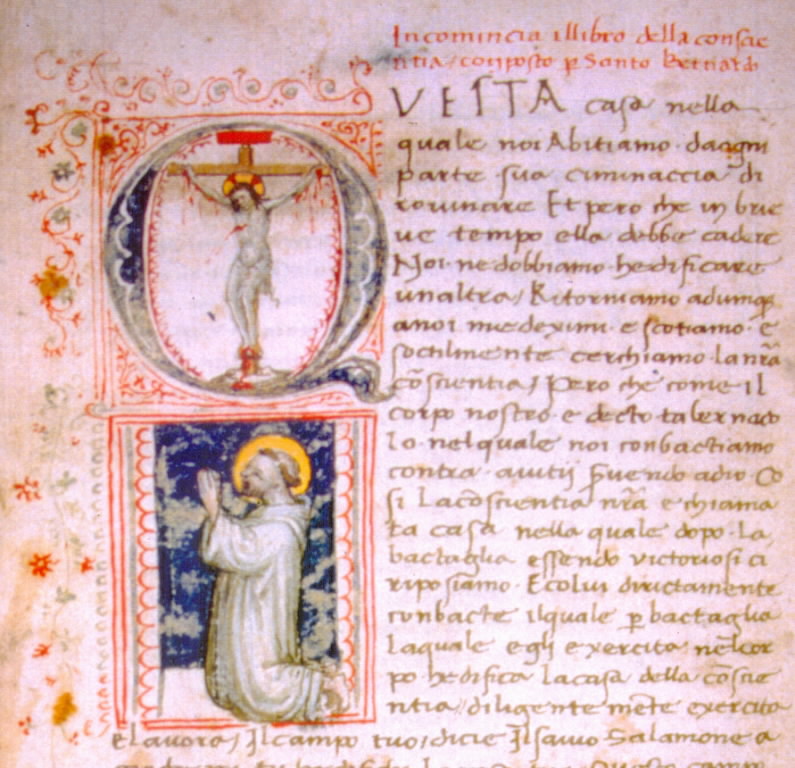 Incomincia illibro della conscie
ntia / conposto p Santo Bernardo
QVESTA casa nella
quale noi Abitiamo daogni
parte sua ciminaccia di
rouinare Et pero che in brie
ue tempo ella debbe cadere
Noi ne dobbiamo hedificare
unaltra / Ritorniamo adumqȝ
anoi medeximi e scotiamo e
soctilmente cerchiamo la nr̃a
cõscientia / Pero che come il
corpo nostro e decto tabernaco
lo nelquale noi conbactiamo
contra auitij seruendo adio Co
si Lacõscientia nr̃a e chiama
ta casa nella quale dopo la
bactaglia essendo victoriosi ci
riposiamo Ecolui dirictamente
conbacte ilquale p bactaglia
laquale egli exercita nelcor
po hedifica lacasa della cõscie
ntia / diligente mẽte exercita
elauora / Ilcampo tuo / dicie Ilsauio Salamone a